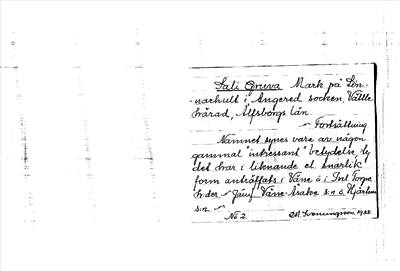 Sali Gruva Mark på Lin-
-narhult i Angered socken, Vättle
härad, Älfsborgs län.
Fortsättning
Namnet synes vara av någon
gammal "intressant" betydelse, ty
det har i liknande el. snarlik
form anträffats i Väne ö i Frl. Torpa
Jämf Väne Åsaka sn o Hjärtum
sn
No 2. 1922